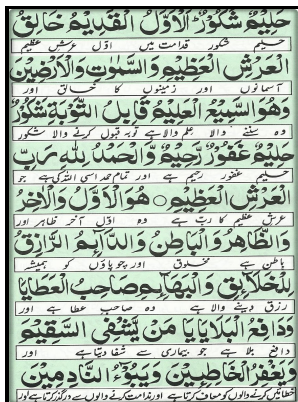 حَلِيْمٌ شَكُوْرٌ اَلْاَوَّلُ الْقَدِيْمُ خَالِقُ
حلیم شکور قدامت میں اوّل عرش عظیم
الْعَرْشِ الْعَظِيْمِ وَالسَّمٰوٰتِ وَالْاَرَضِيْنَ
آسمانوں اور زمینوں کا خالق اور
وَهُوَ السَّمِيْعُ الْعَلِيْمُ قَابِلُ التَّوْبَةِ شَكُوْرٌ
وہ سننے والا علم والا ہے توبہ قبول کرنے والا شکور
حَلِيْمٌ غَفُوْرٌ رَّحِيْمٌ وَّالْحَمْدُ لِلّٰهِ رَبِّ
حلیم غفور رحیم ہے اور تمام حمد اسی اللہ کی ہے جو
الْعَرْشِ الْعَظِيْمِ ○ هُوَ الْاَوَّلُ وَالْاٰخِرُ
عرش عظیم کا رب ہے وہ اوّل آخر ظاہر اور
وَالظَّاهِرُ وَالْبَاطِنُ وَالدَّآئِمُ الرَّازِقُ
باطن ہے مخلوق اور چوپاؤں کو ہمیشہ
لِلْخَلَآئِقِ وَالْبَهَآئِمِ صَاحِبُ الْعَطَايَا
رزق دینے والا ہے وہ صاحب عطا ہے اور
وَدَافِعُ الْبَلَايَا يَا مَنْ يَّشْفِى السَّقِيْمَ
دافع بلا ہے جو بیماری سے شفا دیتا ہے اور
وَيَغْفِرُ الْخَاطِئِيْنَ وَيَبُوْءُ النَّادِمِيْنَ
خطائیں کرنے والوں کو معاف کرتا ہے اور ندامت کرنے والوں سے درگذر کرتا ہے اور